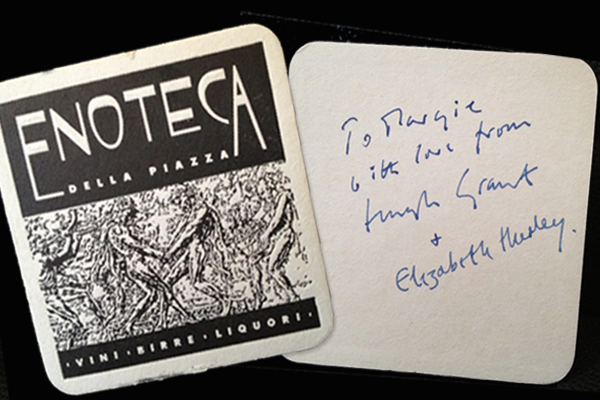 ENOTECA
DELLA PIAZZA
· VINI · BIRRE · LIQUORI ·
To Margie
with love from
Hugh Grant
+
Elizabeth Hurley.